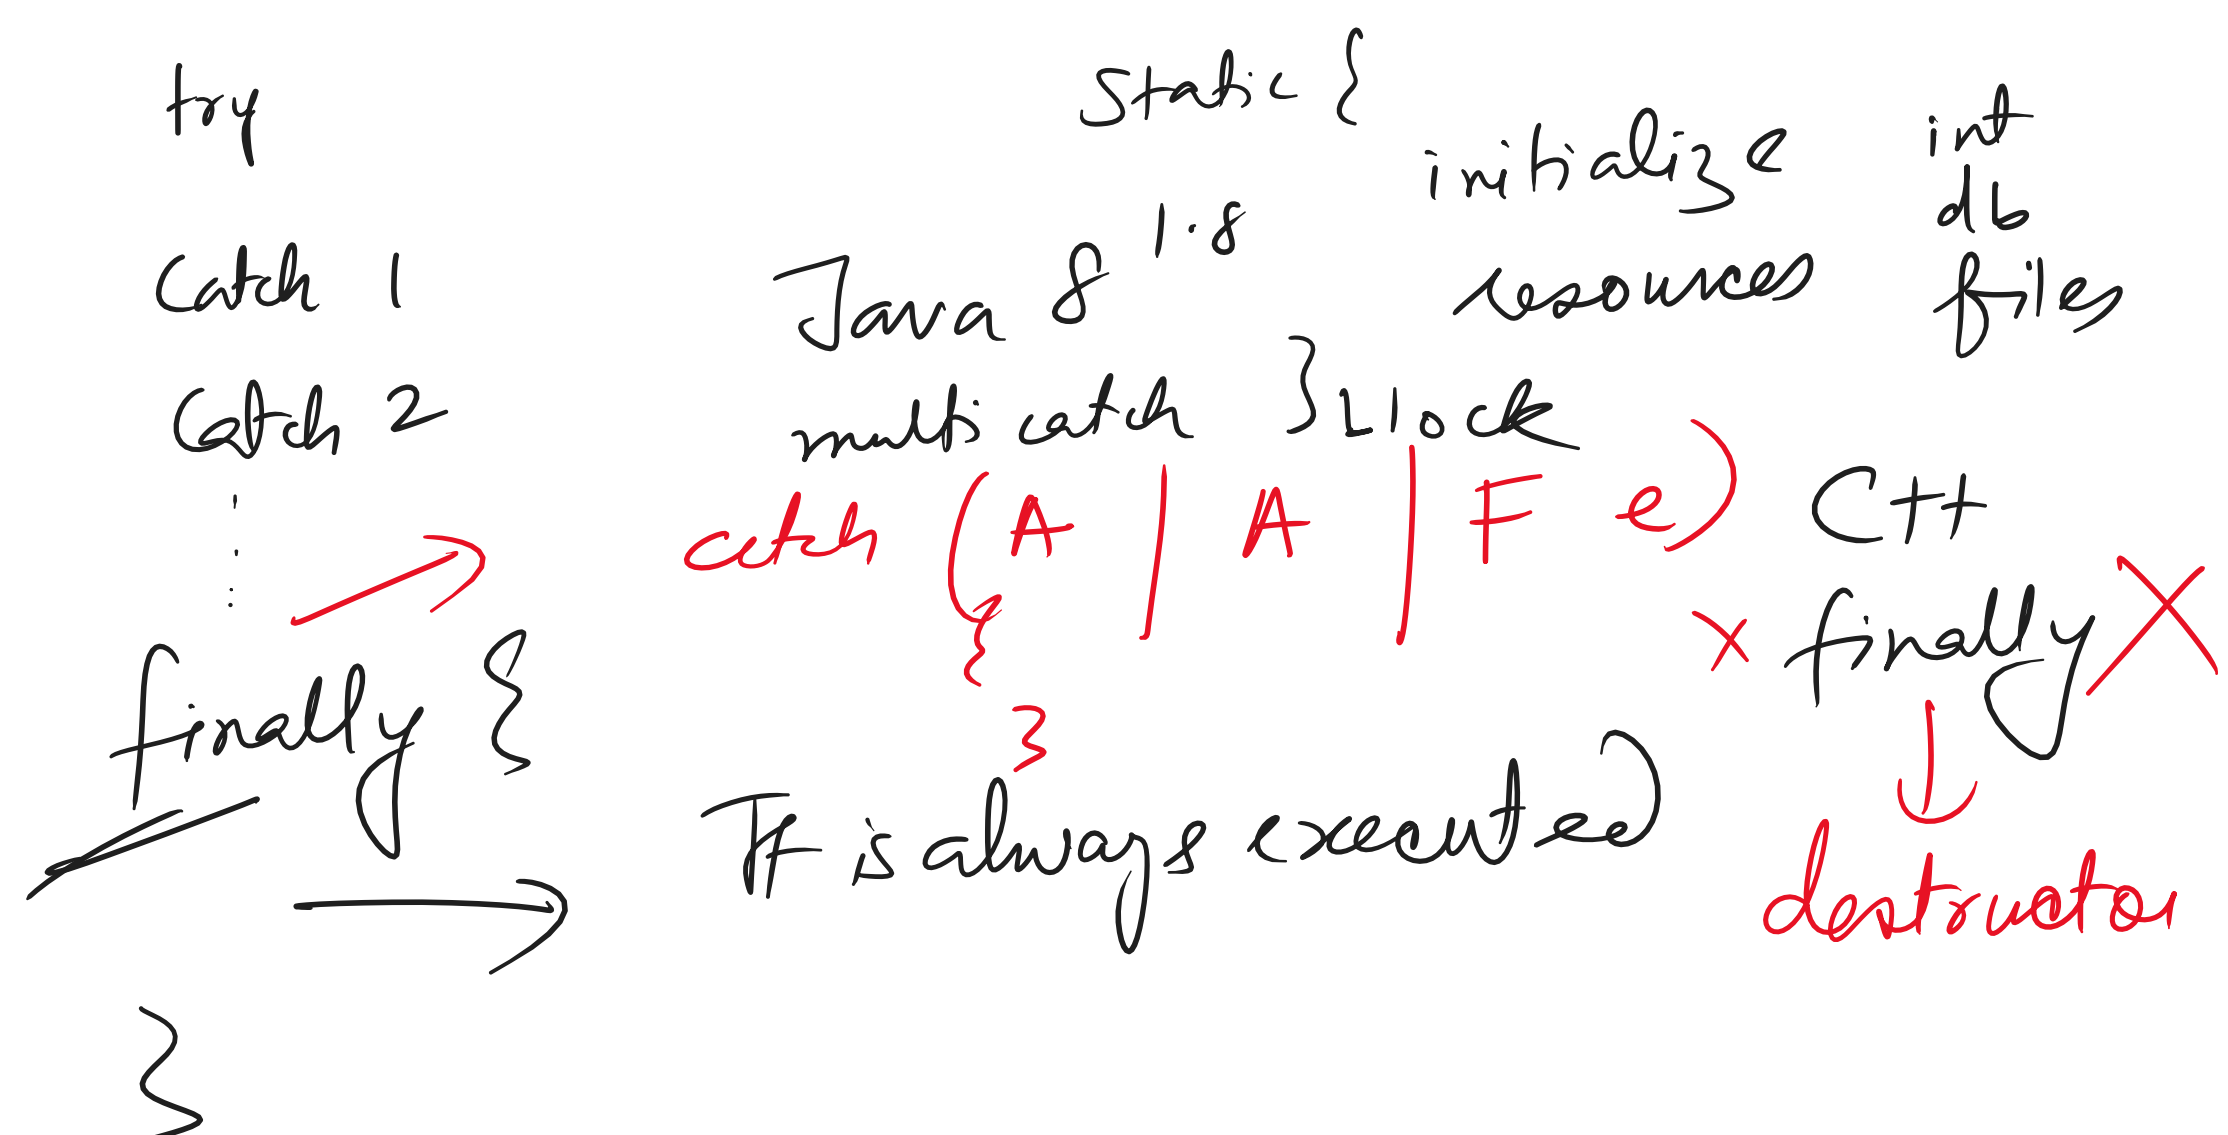 try
catch 1
catch 2
finally {
}
static {
initialize
resources
int
db
files
Java 8 1.8
multi catch } block
catch ( A | A | F e )
{
}
It is always executed
C++
finally
destructor